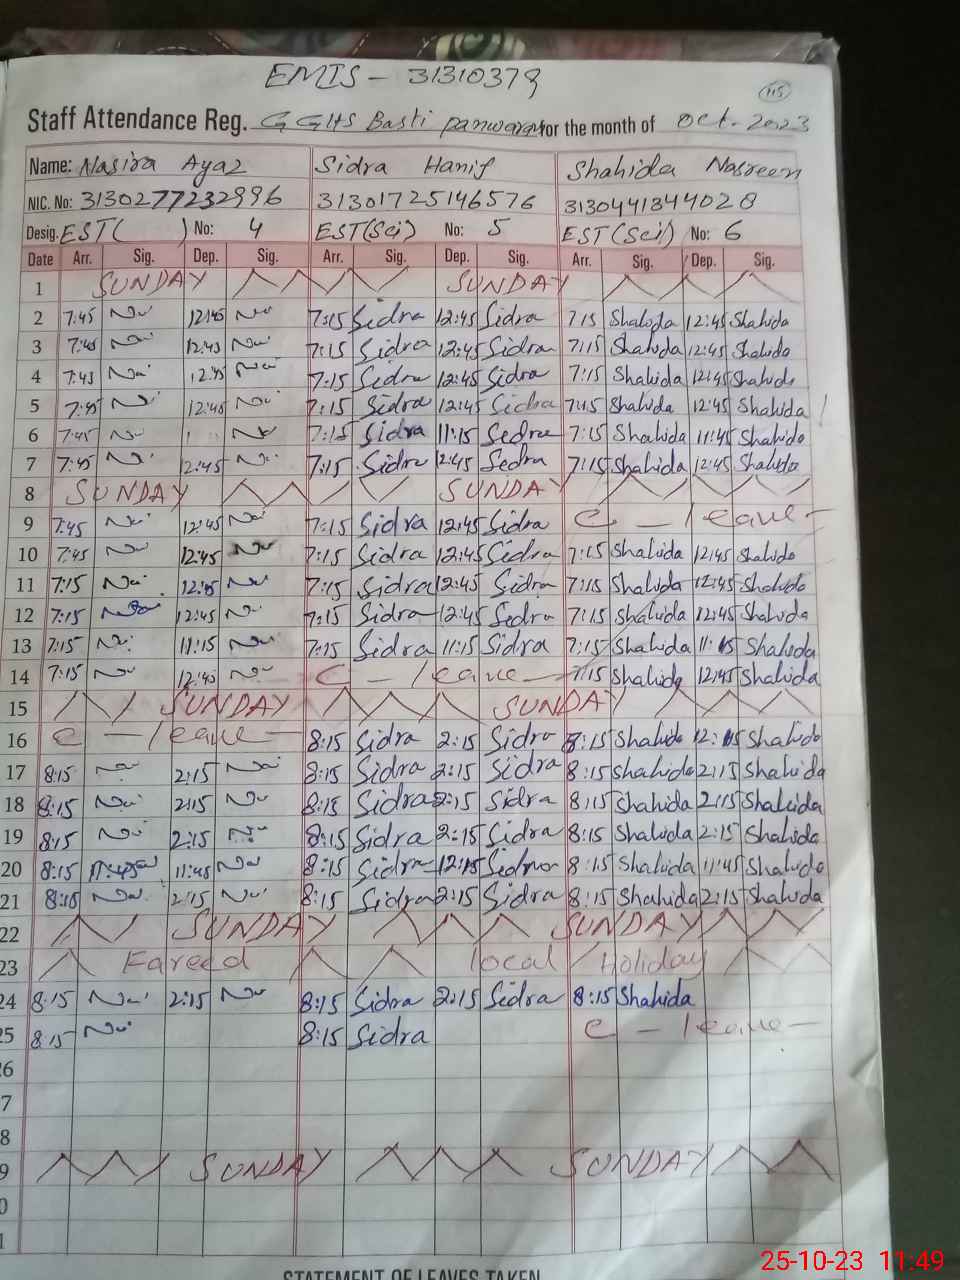 EMIS - 31310379
115
Staff Attendance Reg. GGHS Basti panwaran for the month of Oct. 2023
Name: Nasira Ayaz Sidra Hanif Shahida Nasreen
NIC. No: 3130277232996 31301725146576 3130441344028
Desig. EST( ) No: 4 EST(Sci) No: 5 EST(Sci) No: 6
Date Arr. Sig. Dep. Sig. Arr. Sig. Dep. Sig. Arr. Sig. Dep. Sig.
1 SUNDAY SUNDAY
2 7:45 12:45 7:15 Sidra 12:45 Sidra 7:15 Shahida 12:45 Shahida
3 7:45 12:45 7:15 Sidra 12:45 Sidra 7:15 Shahida 12:45 Shahida
4 7:45 12:45 7:15 Sidra 12:45 Sidra 7:15 Shahida 12:45 Shahida
5 7:45 12:45 7:15 Sidra 12:45 Sidra 7:15 Shahida 12:45 Shahida
6 7:45 7:15 Sidra 11:15 Sidra 7:15 Shahida 11:45 Shahida
7 7:45 12:45 7:15 Sidra 12:45 Sidra 7:15 Shahida 12:45 Shahida
8 SUNDAY SUNDAY
9 7:45 12:45 7:15 Sidra 12:45 Sidra C - leave -
10 7:45 12:45 7:15 Sidra 12:45 Sidra 7:15 Shahida 12:45 Shahida
11 7:15 12:45 7:15 Sidra 12:45 Sidra 7:15 Shahida 12:45 Shahida
12 7:15 12:45 7:15 Sidra 12:45 Sidra 7:15 Shahida 12:45 Shahida
13 7:15 11:15 7:15 Sidra 11:15 Sidra 7:15 Shahida 11:15 Shahida
14 7:15 12:45 C - leave - 7:15 Shahida 12:45 Shahida
15 SUNDAY SUNDAY
16 C - leave - 8:15 Sidra 2:15 Sidra 8:15 Shahida Shahida
17 8:15 2:15 8:15 Sidra 2:15 Sidra 8:15 Shahida 2:15 Shahida
18 8:15 2:15 8:15 Sidra 2:15 Sidra 8:15 Shahida 2:15 Shahida
19 8:15 2:15 8:15 Sidra 2:15 Sidra 8:15 Shahida 2:15 Shahida
20 8:15 11:45 8:15 Sidra 12:15 Sidra 8:15 Shahida 11:45 Shahida
21 8:15 2:15 8:15 Sidra 2:15 Sidra 8:15 Shahida 2:15 Shahida
22 SUNDAY SUNDAY
23 Fareed local Holiday
24 8:15 2:15 8:15 Sidra 2:15 Sidra 8:15 Shahida
25 8:15 8:15 Sidra C - leave -
6
7
8
9 SUNDAY SUNDAY
0
1
STATEMENT OF LEAVES TAKEN
25-10-23 11:49